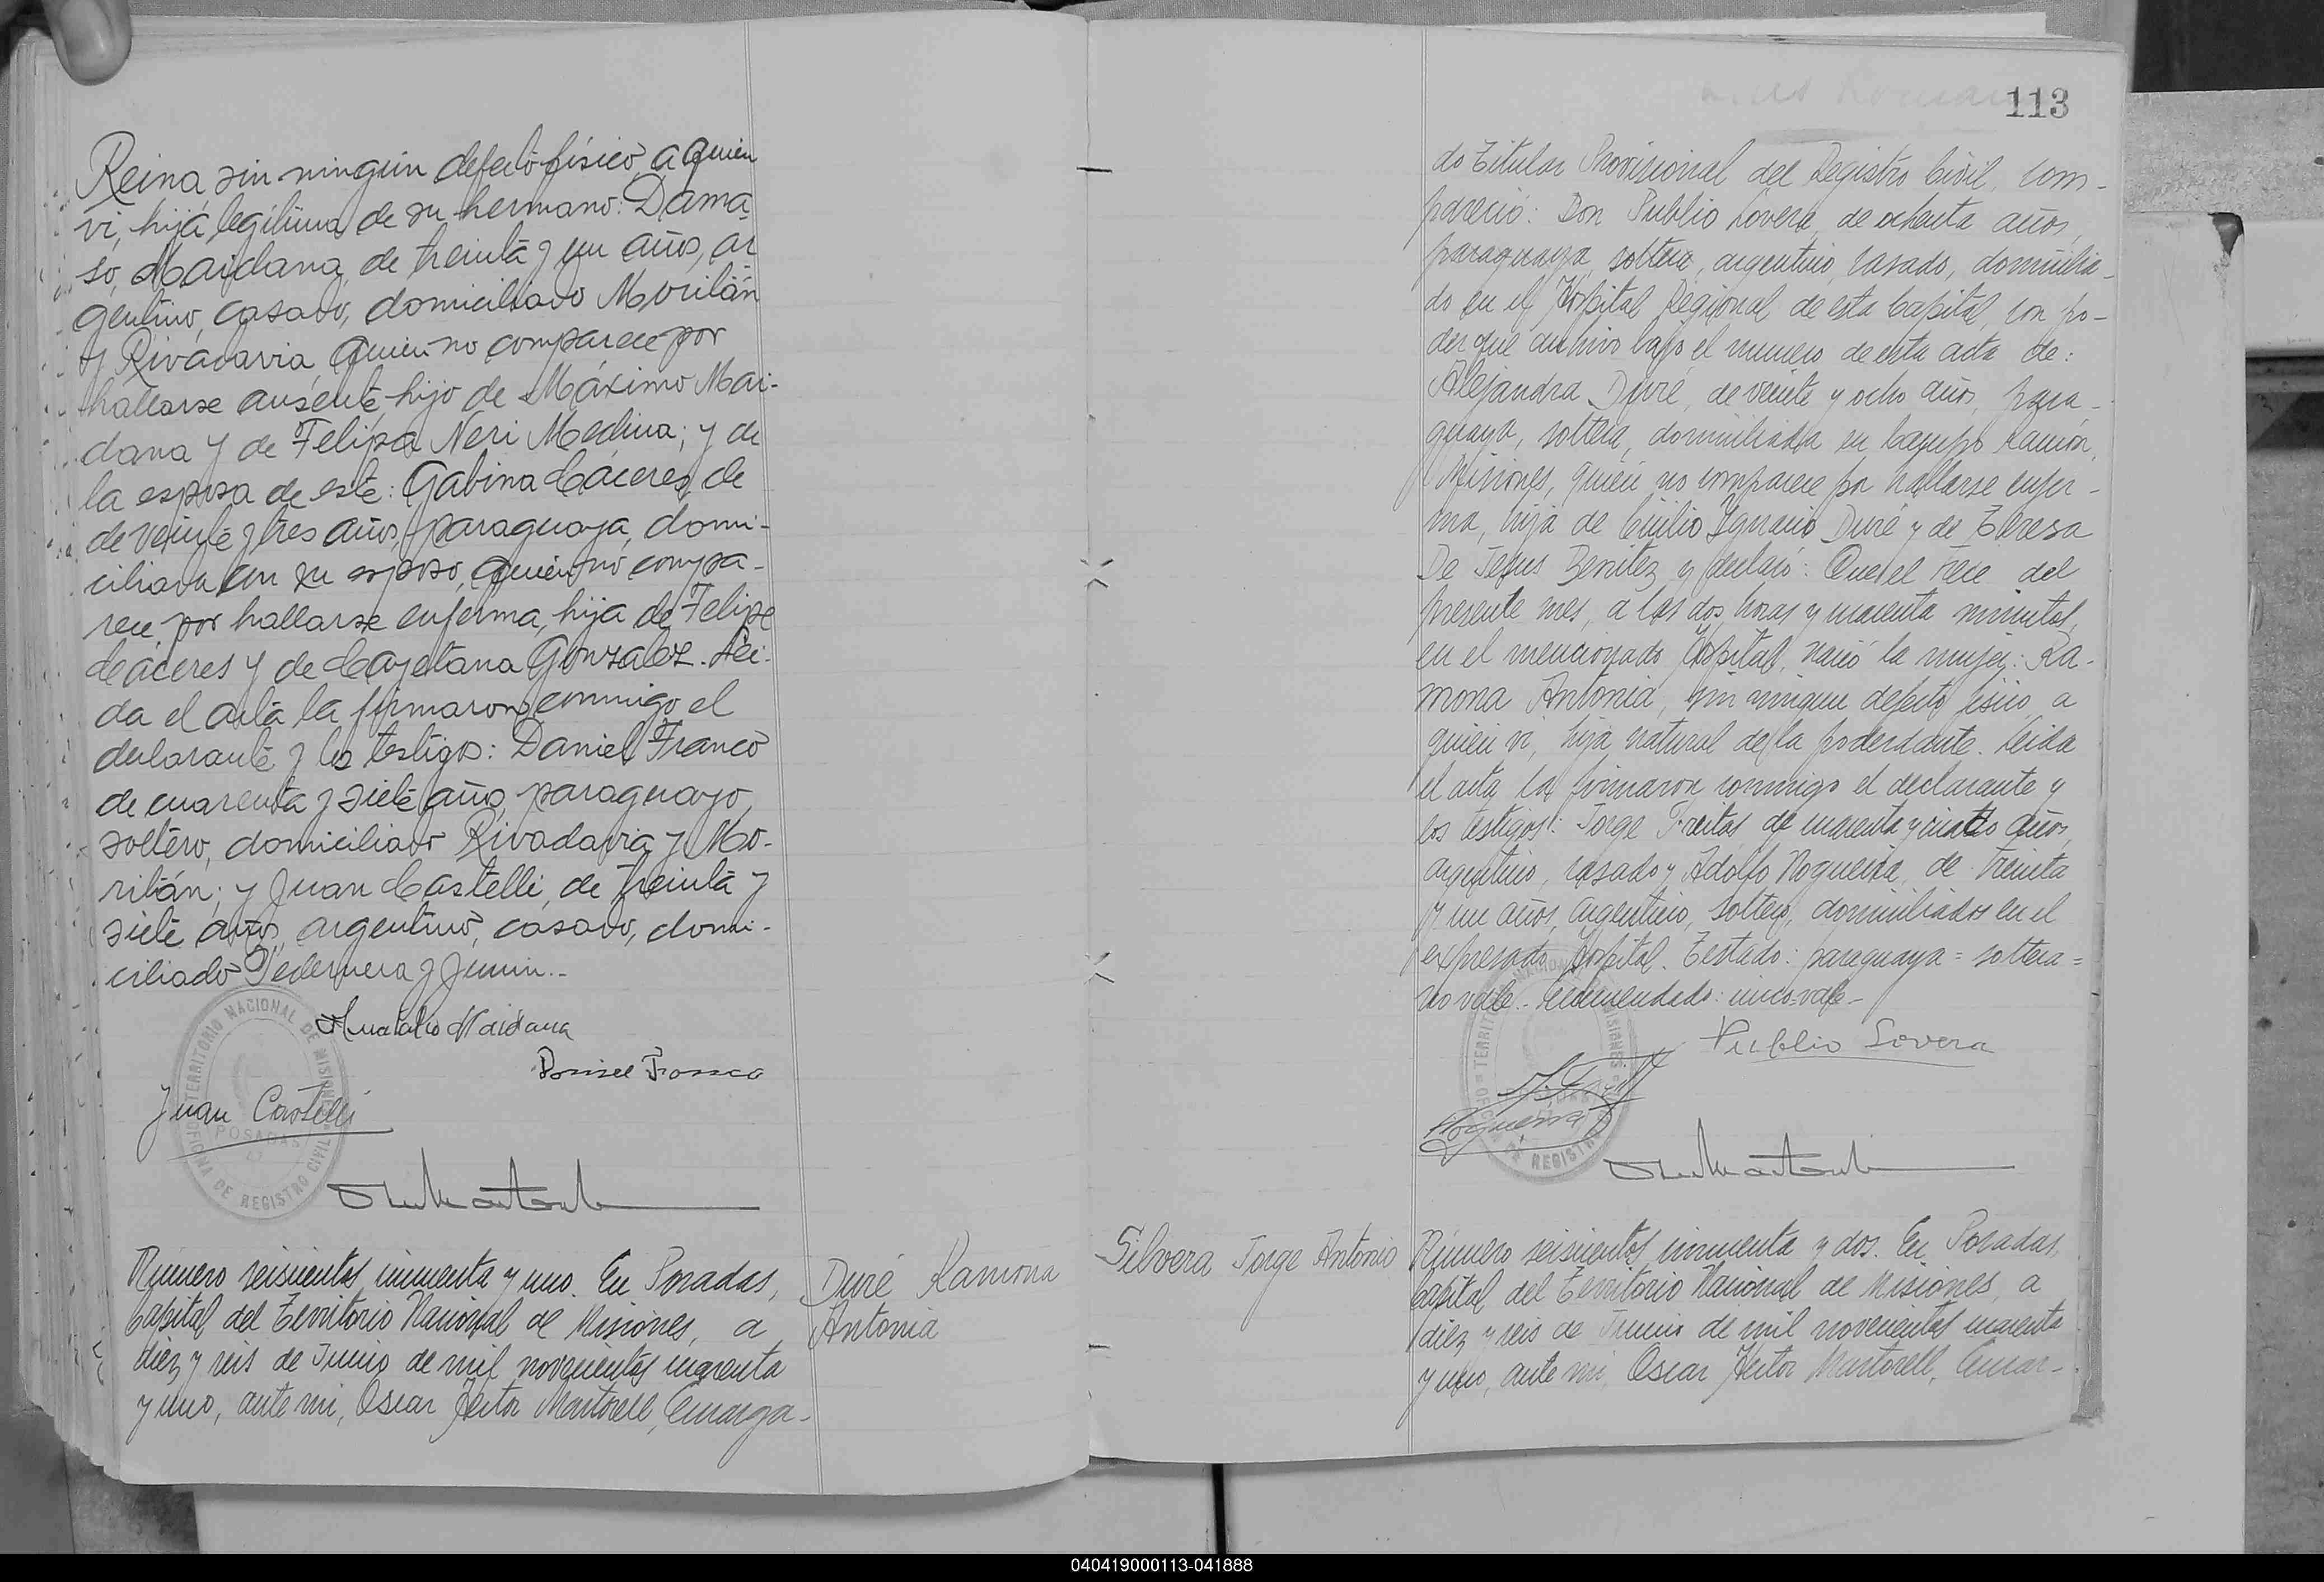 Reina, sin ningún defecto físico, a quien
vi, hija legítima de su hermano: Dáma
so, Maidana, de treinta y un años, ar
gentino, casado, domiciliado Moritán
y Rivadavia, quien no comparece por
hallarse ausente, hijo de Máximo Mai-
dana y de Felipa Neri Medina; y de
la esposa de este: Gabina Cáceres, de
de veinte y tres años, paraguaya, domi-
ciliada con su esposo, quien no compa-
rece por hallarse enferma, hija de Felipe
Cáceres y de Cayetana González. Léi-
da el acta la firmaron conmigo el
declarante y los testigos: Daniel Franco
de cuarenta y siete años, paraguayo,
soltero, domiciliado Rivadavia y Mo-
ritán; y Juan Castelli, de treinta y
siete años, argentino, casado, domi-
ciliado Pedernera y Junin.-
Maidana
Daniel Franco
Juan Castelli
TERRITORIO NACIONAL DE MISIONES
POSADAS
OFICINA DE REGISTRO CIVIL
Número seiscientos cincuenta y uno. En Posadas,
Capital del Territorio Nacional de Misiones, a
diez y seis de Junio de mil novecientos cuarenta
y uno, ante mi, Oscar Héctor Martorell, Encarga-
Duré Ramona
Antonia
113
do Titular Provisional del Registro Civil, com-
pareció: Don Publio Lovera, de ochenta años,
paraguaya, soltera, argentino, casado, domicilia-
do en el Hospital Regional de esta Capital, con po-
der que archivo bajo el numero de esta acta de:
Alejandra Duré, de veinte y ocho años, para-
guaya, soltera, domiciliada en Campo Ramón,
Misiones, quien no comparece por hallarse enfer-
ma, hija de Emilio Ignacio Duré y de Teresa
De Jesus Benitez y declaró: Que el trece del
presente mes, a las dos horas y cuarenta minutos,
en el mencionado Hospital, nació la mujer: Ra-
mona Antonia, sin ningun defecto fisico, a
quien vi, hija natural de la poderdante. Leida
el acta, la firmaron conmigo el declarante y
los testigos: Jorge Freitas, de cuarenta y cinco años,
argentino, casado y Adolfo Nogueira, de treinta
y un años, argentino, soltero, domiciliados en el
expresado Hospital. Testado: paraguaya = soltera =
no vale.- Enmendado: cinco-vale-
Publio Lovera
Nogueira
TERRITORIO NACIONAL DE MISIONES
OFICINA DE REGISTRO
Silvera Jorge Antonio
Número seiscientos cincuenta y dos. En Posadas,
Capital del Territorio Nacional de Misiones, a
diez y seis de Junio de mil novecientos cuarenta
y uno, ante mi, Oscar Héctor Martorell, Encar-
040419000113-041888